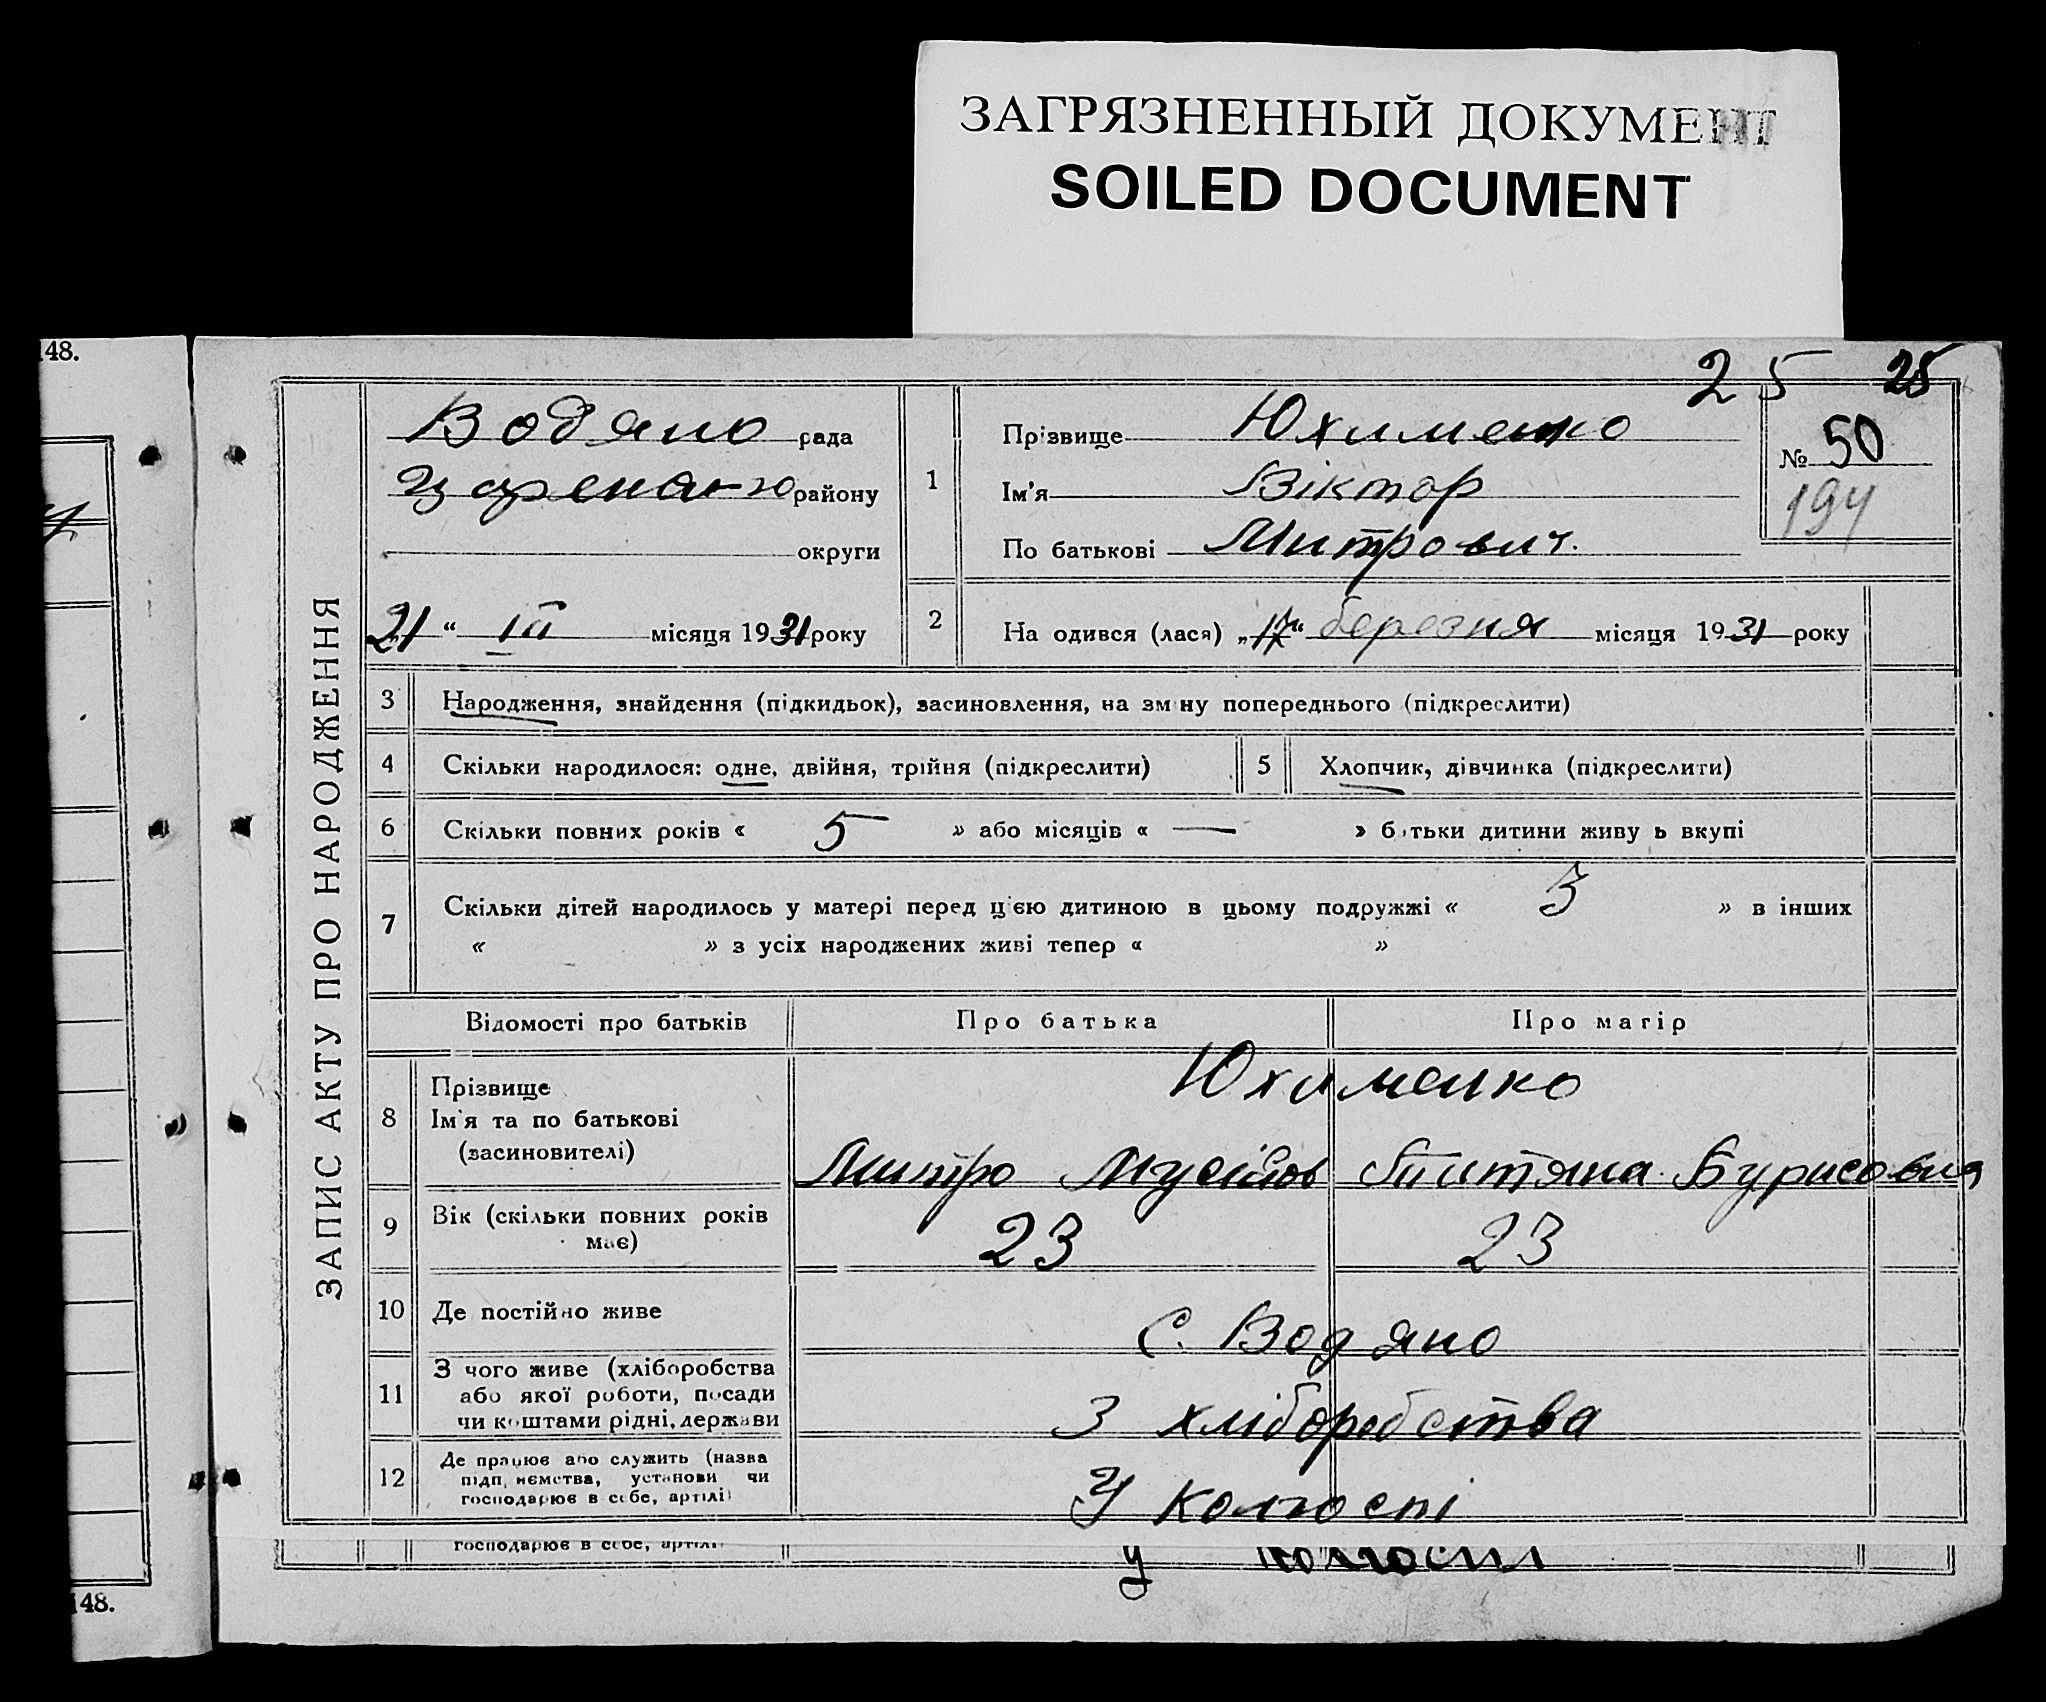 ЗАГРЯЗНЕННЫЙ ДОКУМЕНТ
SOILED DOCUMENT
148.
25 25
ЗАПИС АКТУ ПРО НАРОДЖЕННЯ
Водяно рада
району
округи
21 " III місяця 1931 року
1
Прізвище Юхименко
Ім'я Віктор
По батькові Митрович.
№ 50
194
2 На одився (лася) „17" березня місяця 1931 року
3 Народження, знайдення (підкидьок), засиновлення, на зміну попереднього (підкреслити)
4 Скільки народилося: одне, двійня, трійня (підкреслити) 5 Хлопчик, дівчинка (підкреслити)
6 Скільки повних років « 5 » або місяців « — » батьки дитини живу ь вкупі
7 Скільки дітей народилось у матері перед цією дитиною в цьому подружжі « 3 » в інших
« » з усіх народжених живі тепер « »
Відомості про батьків Про батька Про матір
8 Прізвище Юхименко
Ім'я та по батькові
(засиновителі) Митро Титяна Бурисовна
9 Вік (скільки повних років має) 23 23
10 Де постійно живе С. Водяно
11 З чого живе (хліборобства
або якої роботи, посади
чи коштами рідні, держави З хліборобства
12 Де працює або служить (назва
підприємства, установи чи
господарює в себе, артілі) У колгоспі
господарює в себе, артілі у колгоспі
148.